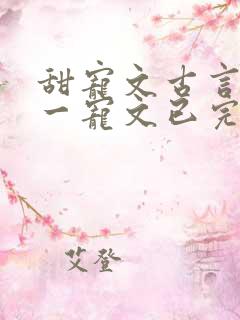 甜宠文古言
一宠文已完
艾登